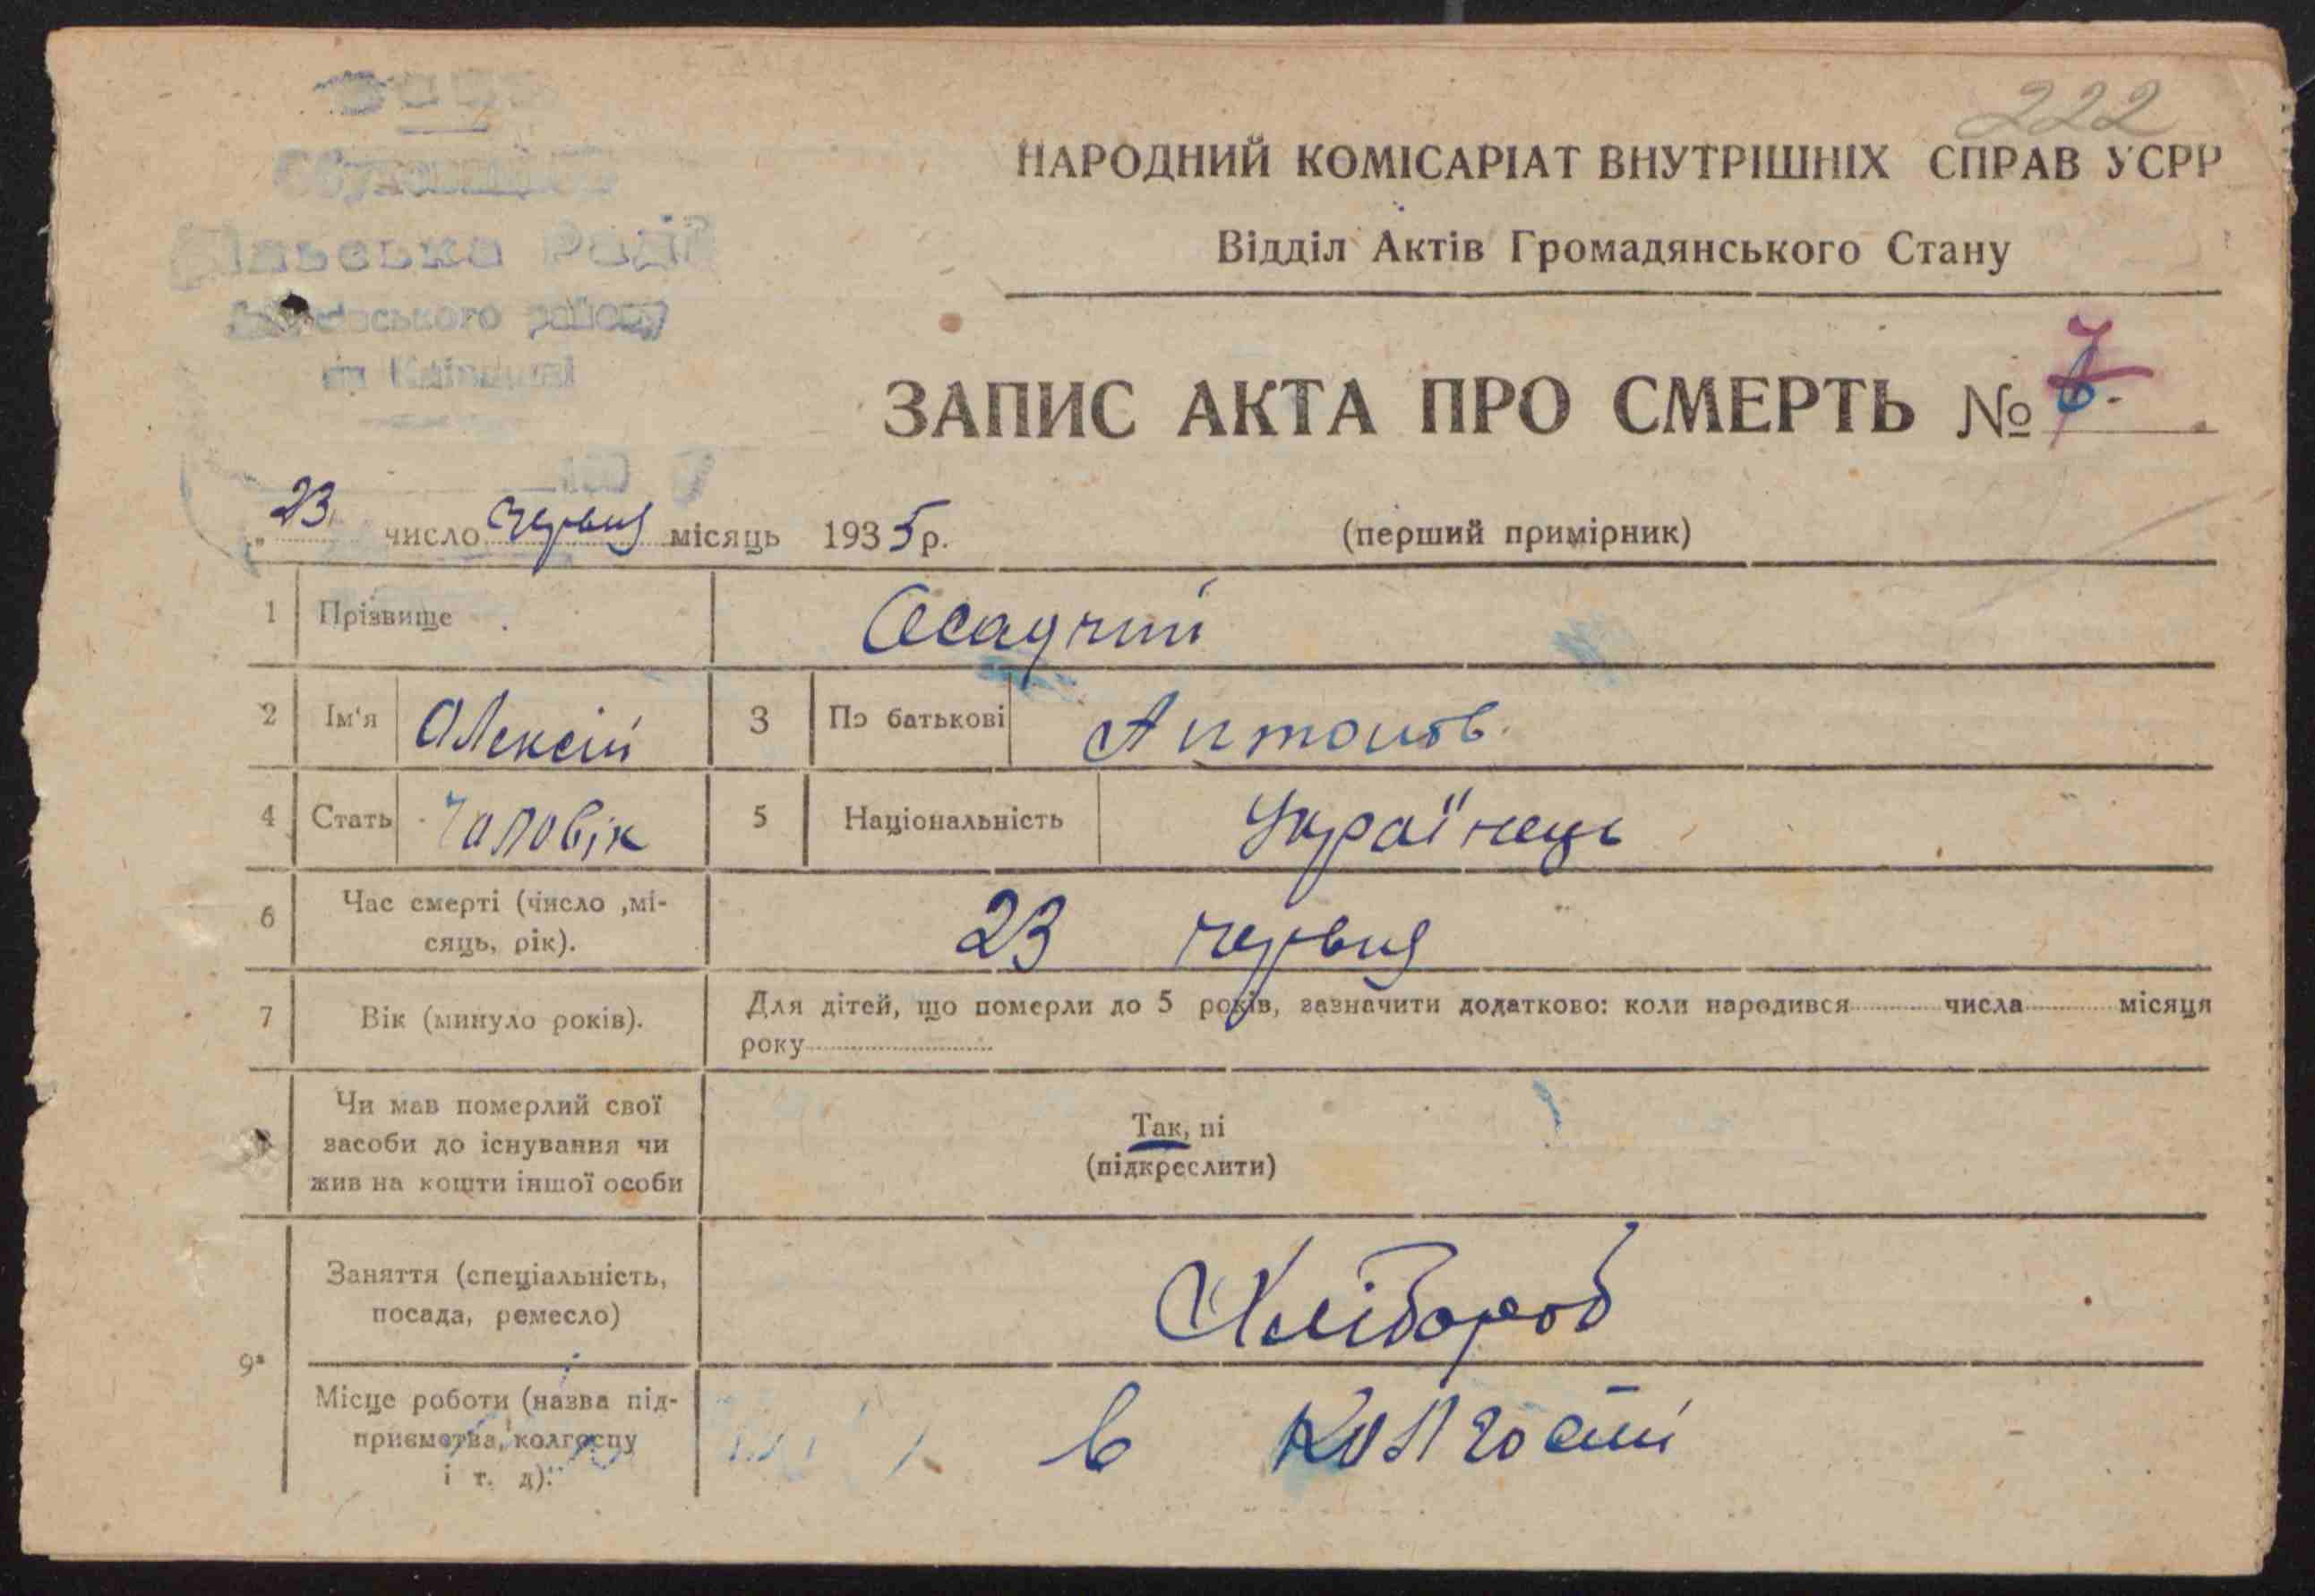 222
НАРОДНИЙ КОМІСАРІАТ ВНУТРІШНІХ СПРАВ УСРР
Відділ Актів Громадянського Стану
Сільська Рада
району
на Київщині
ЗАПИС АКТА ПРО СМЕРТЬ № 7
„23 число червня місяць 1935 р.
(перший примірник)
1 Прізвище Осадчий
2 Ім'я Олексій 3 По батькові Антонов.
4 Стать Чаловік 5 Національність Українець
6 Час смерті (число ,мі-
сяць, рік). 23 червня
7 Вік (минуло років). Для дітей, що померли до 5 років, зазначити додатково: коли народився числа місяця
року
Чи мав померлий свої
засоби до існування чи
жив на кошти іншої особи
Так, ні
(підкреслити)
9а
Заняття (спеціальність,
посада, ремесло) Хлібороб
Місце роботи (назва під-
приємства, колгоспу
і т. д). в колгоспі